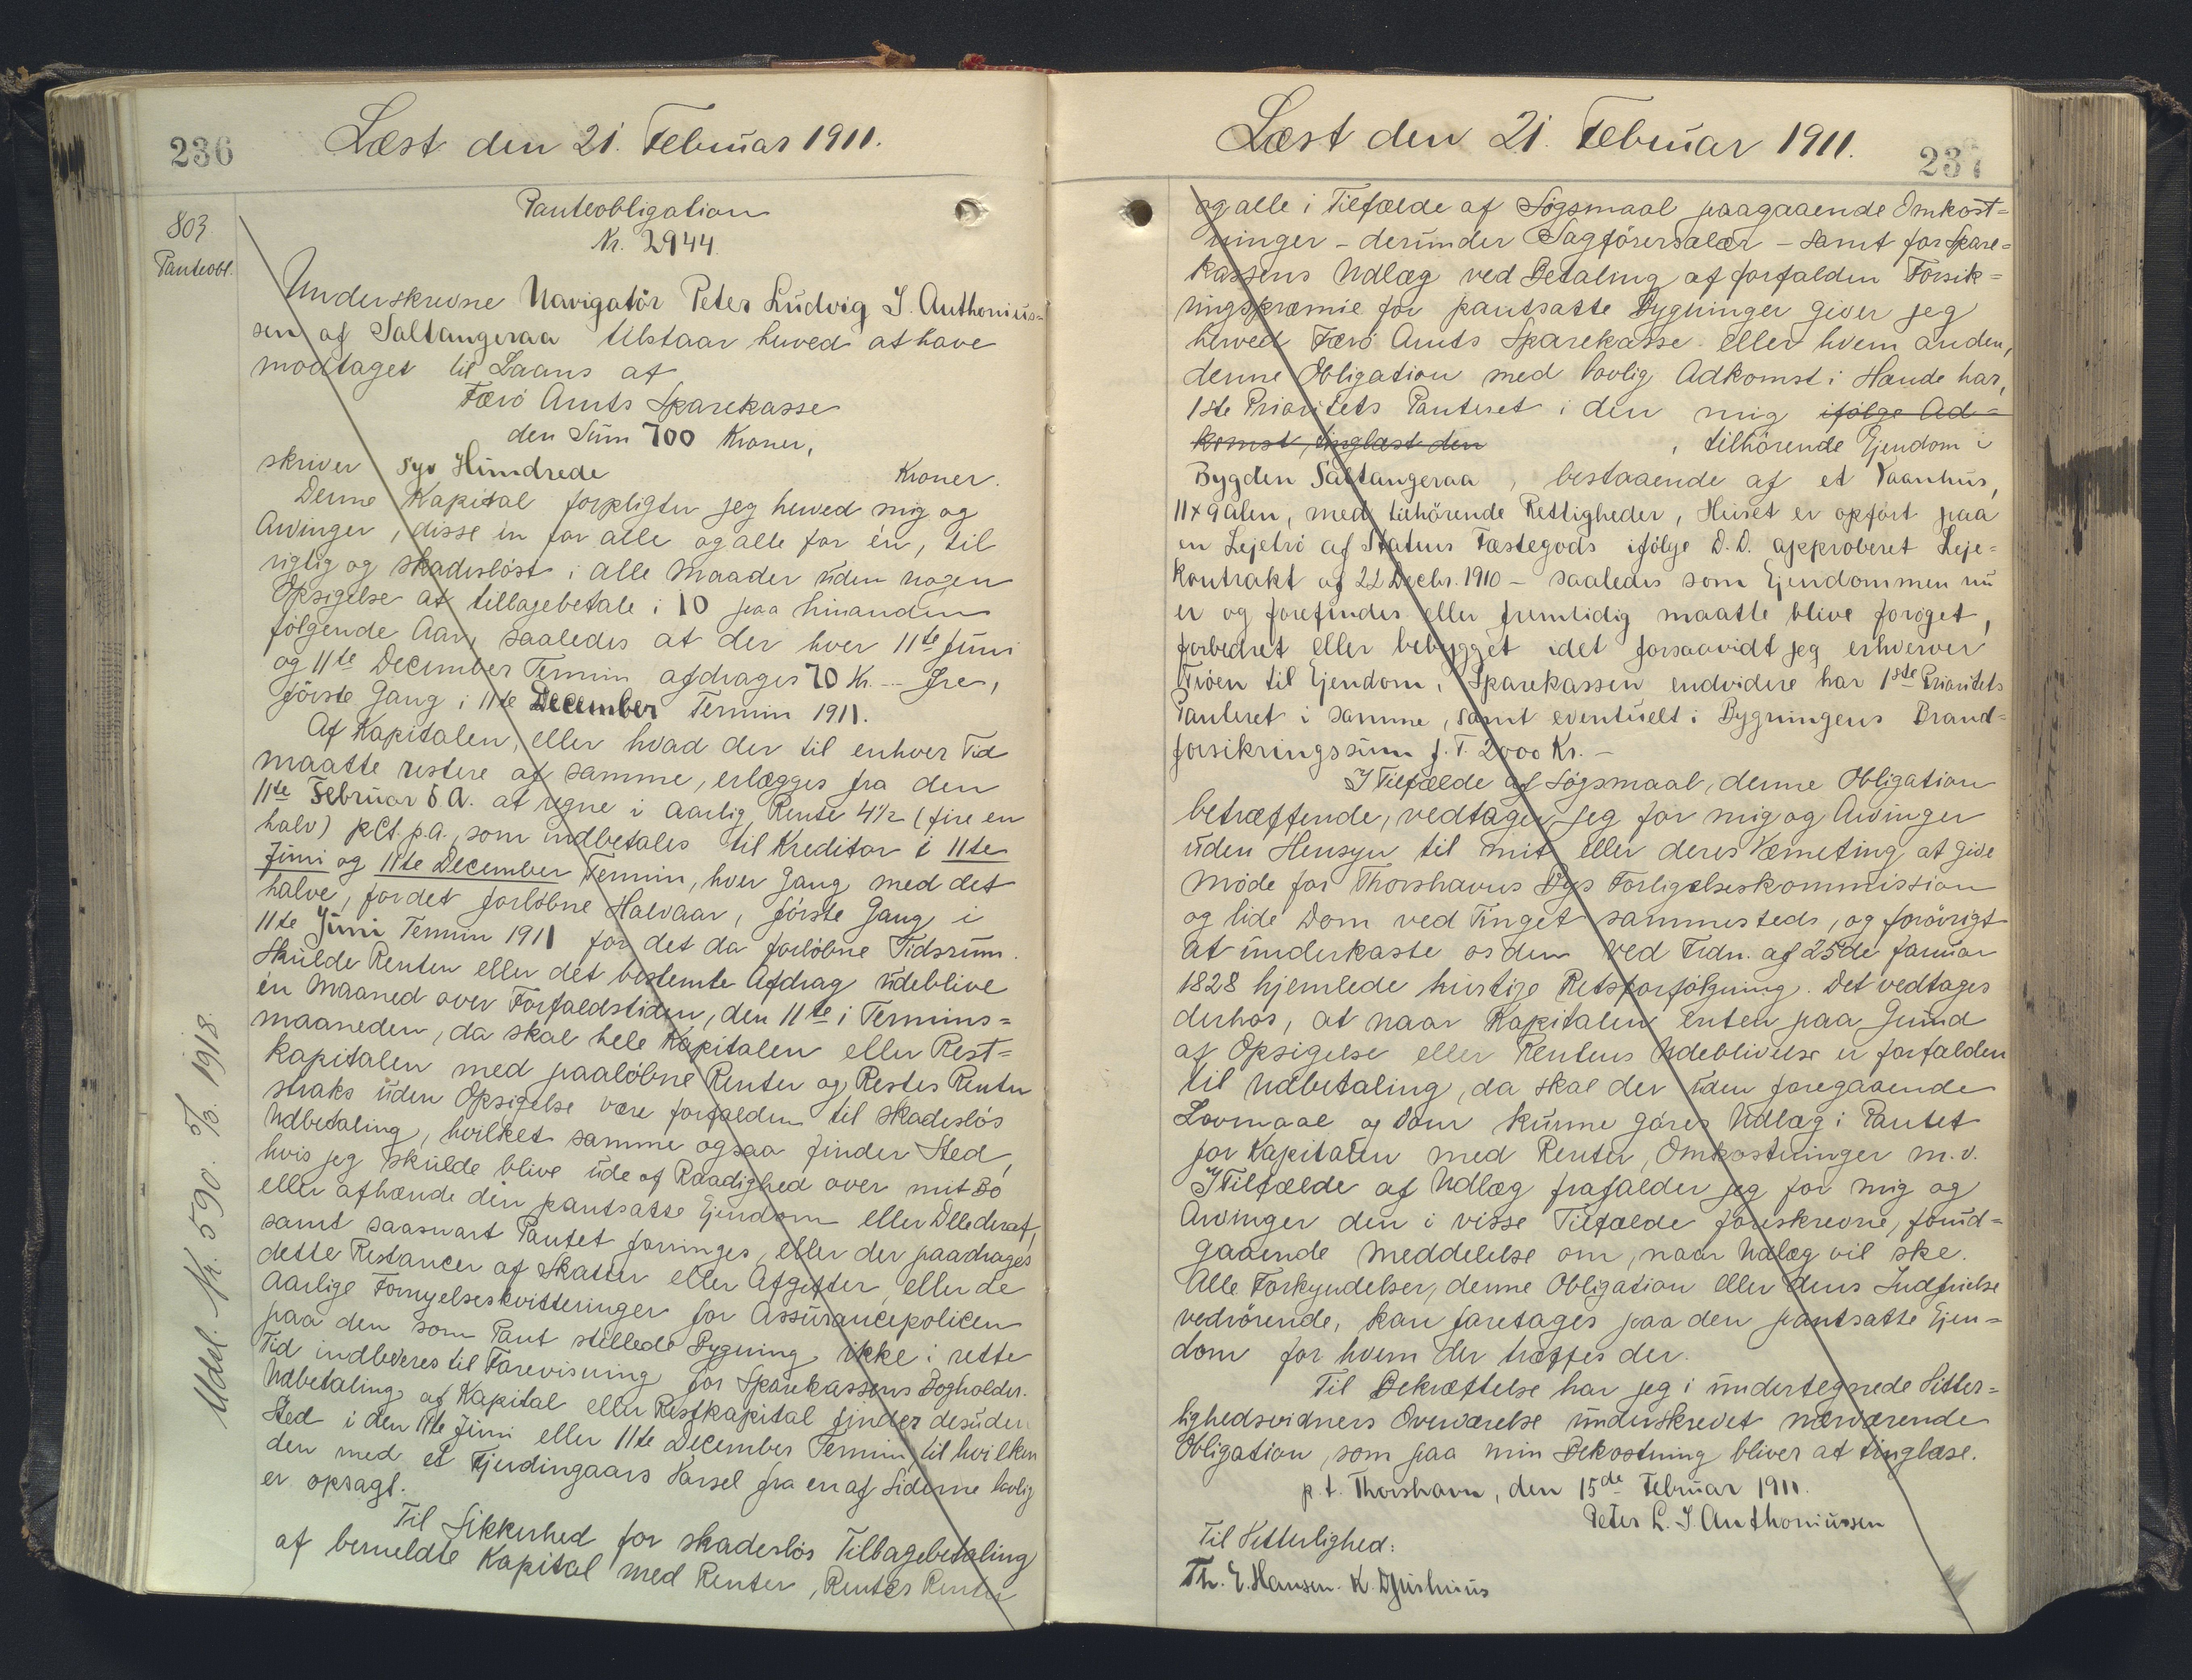 236
Læst den 21. Februar 1911.
803.
Panteobl.
Panteobligation
Nr. 2944
Underskrevne Navigatör Peter Ludvig J. Anthonius=
sen af Saltangeraa tilstaar herved at have
modtaget til Laans af
Færö Amts Sparekasse
den Sum 700 Kroner,
skriver syv Hundrede Kroner.
Denne Kapital forpligter jeg herved mig og
Arvinger, disse en for alle og alle for én, til
rigtig og skadeslöst i alle Maader uden nogen
Opsigelse at tilbagebetale i 10 paa hinanden
fölgende Aar, saaledes at der hver 11te Juni
og 11te December Termin afdrages 70 Kr. -- Öre,
förste Gang i 11te December Termin 1911.
Af Kapitalen, eller hvad der til enhver Tid
maatte restere af samme, erlægges fra den
11te Februar d. A. at regne i aarlig Rente 4½ (fire en
halv) pCt. p.a., som indbetales til Kreditor i 11te
Juni og 11te December Termin, hver Gang med det
halve, for det forlöbne Halvaar, förste Gang i
11te Juni Termin 1911 for det da forlöbne Tidsrum.
Skulde Renten eller det bestemte Afdrag udeblive
én Maaned over Forfaldstiden, den 11te i Termins=
maaneden, da skal hele Kapitalen eller Rest=
kapitalen med paalöbne Renter og Rentes Renter
straks uden Opsigelse være forfalden til skadeslös
Udbetaling, hvilket samme ogsaa finder Sted,
hvis jeg skulde blive ude af Raadighed over mit Bo
eller afhænde den pantsatte Ejendom eller Dele deraf,
samt saasnart Pantet forringes, eller der paadrages
dette Restancer af Skatter eller Afgifter, eller de
aarlige Fornyelseskvitteringer for Assurancepolicen
paa den som Pant stillede Bygning ikke i rette
Tid indleveres til Forevisning for Sparekassens Bogholder.
Udbetaling af Kapital eller Restkapital finder desuden
Sted i den 11te Juni eller 11te December Termin, til hvilken
den med et Fjerdingaars Varsel fra en af Siderne lovlig
er opsagt.
Til Sikkerhed for skadeslös Tilbagebetaling
af bemeldte Kapital med Renter, Rentes Renter
Udsl. Nr. 590. 5/3. 1918.
Læst den 21. Februar 1911.
237
og alle i Tilfælde af Sögsmaal paagaaende Omkost=
ninger - derunder Sagförersalær - samt for Spare=
kassens Udlæg ved Betaling af forfalden Forsik=
ringspræmie for pantsatte Bygninger giver jeg
herved Færö Amts Sparekasse eller hvem anden,
denne Obligation med lovlig Adkomst i Hænde har,
1ste Prioritets Panteret i den mig ifölge Ad=
komst, tinglæst den , tilhörende Ejendom i
Bygden Saltangeraa, bestaaende af et Vaanhus,
11 x 9 alen, med tilhörende Rettigheder, Huset er opfört paa
en Lejetrö af Statens Fæstegods ifölge D. D. approberet Leje=
kontrakt af 22 Decbr. 1910 - saaledes som Ejendommen nu
er og forefindes eller fremtidig maatte blive foröget,
forbedret eller bebygget idet forsaavidt jeg erhverver
Tröen til Ejendom, Sparekassen endvidere har 1ste Prioritets
Panteret i samme, samt eventuelt i Bygningens Brand=
forsikringssum f. T. 2000 Kr. -
I Tilfælde af Sögsmaal, denne Obligation
betræffende, vedtager jeg for mig og Arvinger
uden Hensyn til mit eller deres Værneting at give
Möde for Thorshavns Bys Forligelseskommission
og lide Dom ved Tinget sammesteds, og forövrigt
at underkaste os den ved Frdn. af 25de Januar
1828 hjemlede hurtige Retsforfölgning. Det vedtages
derhos, at naar Kapitalen enten paa Grund
af Opsigelse eller Rentens Udeblivelse er forfalden
til Udbetaling, da skal der uden foregaaende
Lovmaal og Dom kunne göres Udlæg i Pantet
for Kapitalen med Renter, Omkostninger m. v.
I Tilfælde af Udlæg frafalder jeg for mig og
Arvinger den i visse Tilfælde foreskrevne, forud=
gaaende Meddelelse om, naar Udlæg vil ske.
Alle Forkyndelser, denne Obligation eller dens Indfrielse
vedrörende, kan foretages paa den pantsatte Ejen=
dom for hvem der træffes der.
Til Bekræftelse har jeg i undertegnede Vitter=
lighedsvidners Overværelse underskrevet nærværende
Obligation, som paa min Bekostning bliver at tinglæse.
p. t. Thorshavn, den 15de Februar 1911.
Peter L. J Anthoniussen
Til Vitterlighed:
Th. E. Hansen. K. Djurhuus